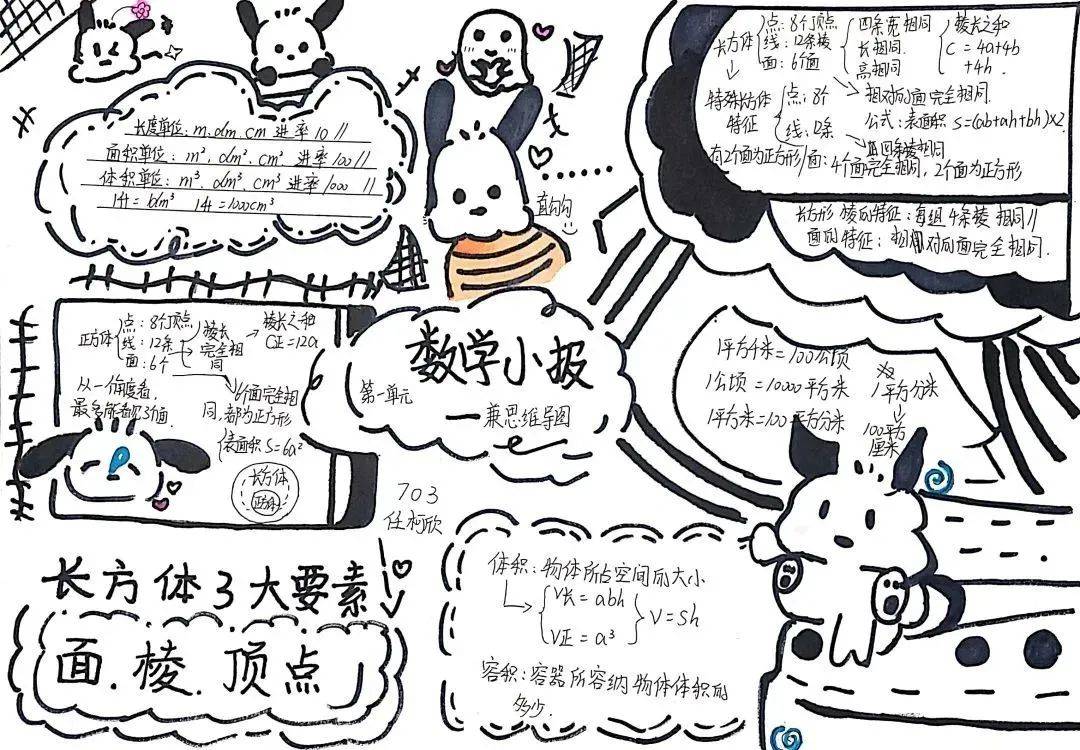 长度单位:m、dm、cm 进率 10 //
面积单位:m²、dm²、cm² 进率 100 //
体积单位:m³、dm³、cm³ 进率 1000 //
1升=1dm³ 1升=1000cm³
直勾勾
长方体
点:8个顶点
线:12条棱
面:6个面
四条宽相同
长相同
高相同
棱长之和
C = 4a+4b
+4h.
相对的面完全相同.
公式:表面积 S=(ab+ah+bh)×2
特殊长方体
特征
点:8个
线:12条
四条棱相同
有2个面为正方形/面:4个面完全相同,2个面为正方形
长方形 棱的特征:每组4条棱相同//
面的特征:相对的面完全相同.
正方体
点:8个顶点
线:12条
面:6个
棱长
完全相
同
棱长之和
C正=12a
6个面完全相
同,都为正方形
从一个角度看,
最多能看见3个面.
表面积 S=6a²
长方体
正方体
数学小报
第一单元
——兼思维导图
1平方千米=100公顷
1公顷=10000平方米
1平方米=100平方分米
1平方分米
100平方
厘米
703
任柯欣
长方体3大要素
面、棱、顶点
体积:物体所占空间的大小
V长=abh
V正=a³
V=Sh
容积:容器所容纳物体体积的
多少.